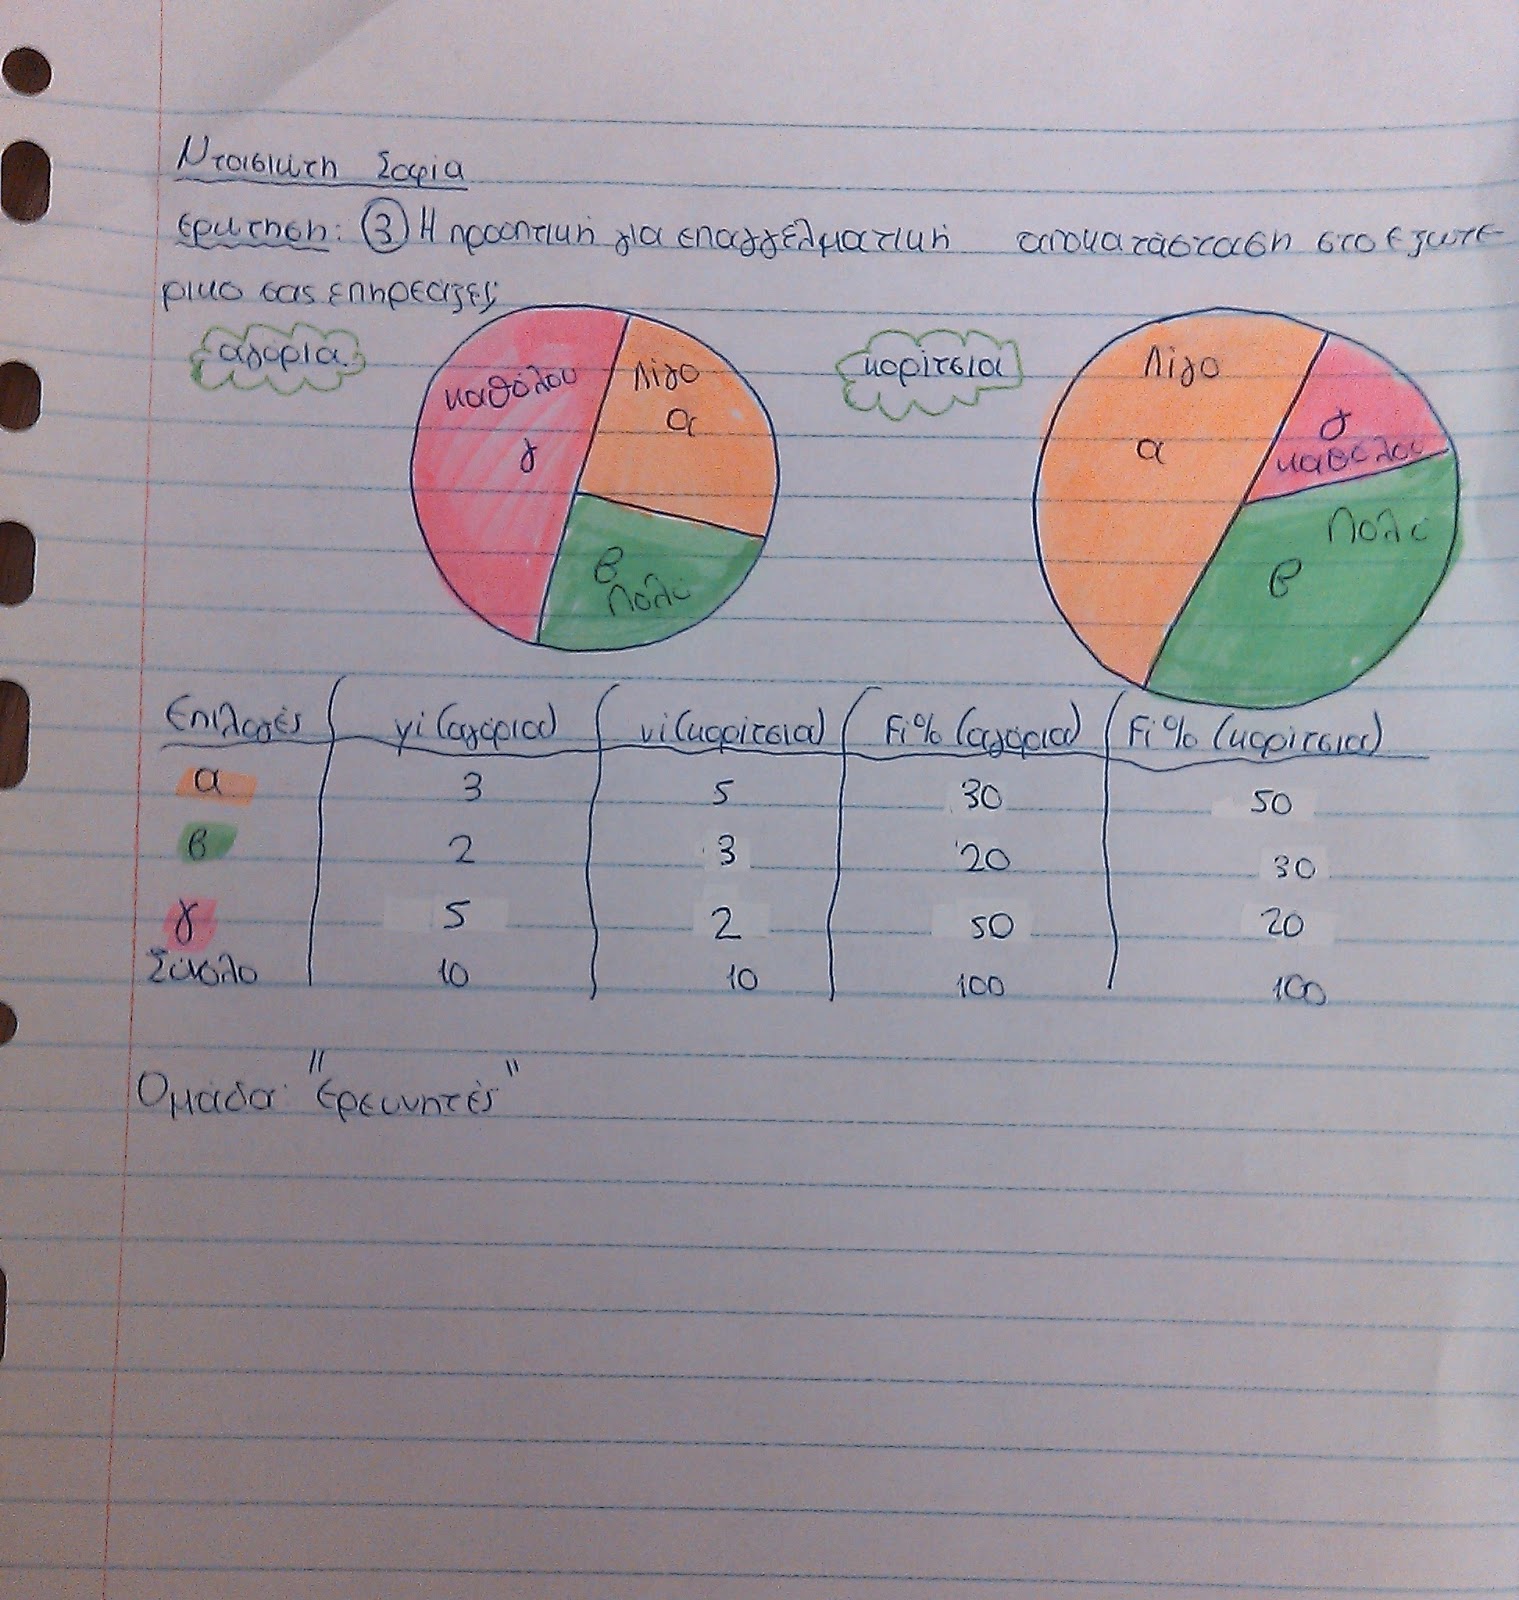 Ντοισιώτη Σοφία
Ερώτηση: ③ Η προοπτική για επαγγελματική αποκατάσταση στο εξωτε-
ρικο σας επηρεάζει;
αγόρια
κορίτσια
καθόλου
γ
Λίγο
α
β
Πολύ
Λίγο
α
γ
καθόλου
Πολύ
β
Επιλογές νi (αγόρια) νi (κορίτσια) Fi% (αγόρια) Fi% (κορίτσια)
α 3 5 30 50
β 2 3 20 30
γ 5 2 50 20
Σύνολο 10 10 100 100
Ομάδα: "Ερευνητές"